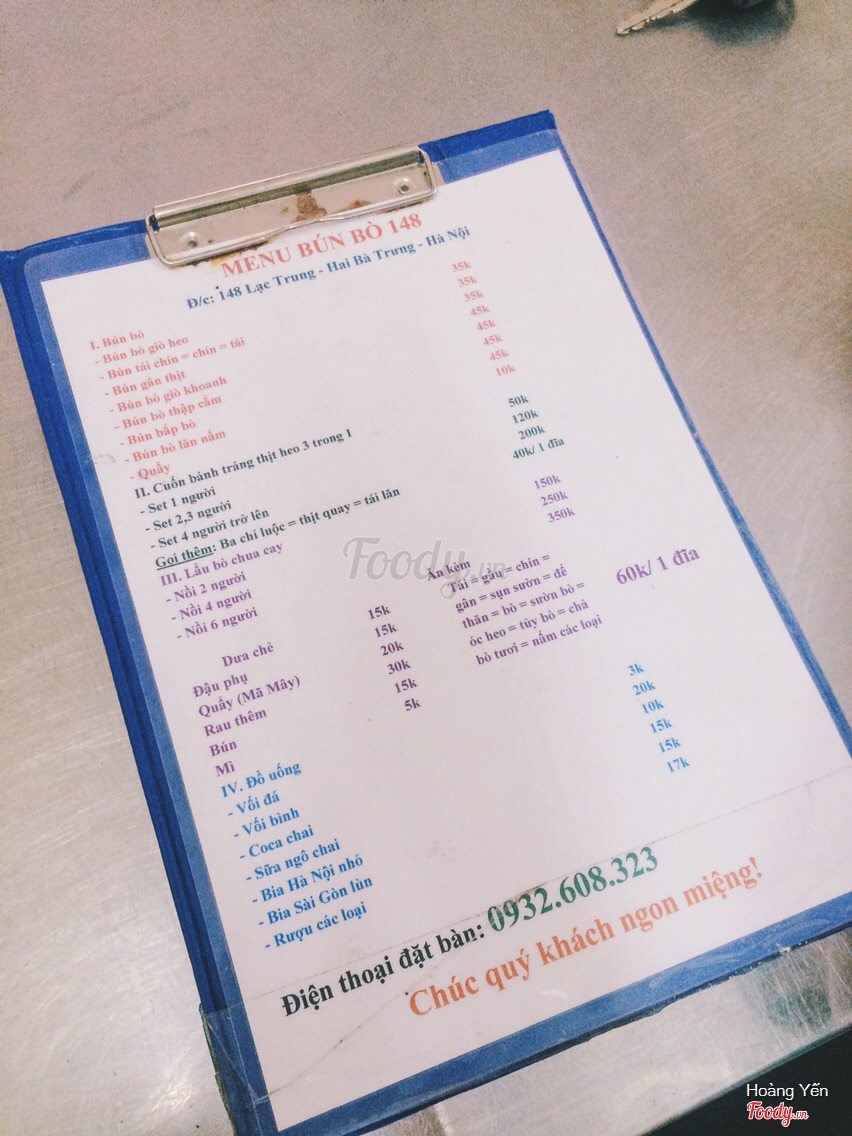 MENU BÚN BÒ 148
Đ/c: 148 Lạc Trung - Hai Bà Trưng - Hà Nội
I. Bún bò
- Bún bò giò heo 35k
- Bún tái chín = chín = tái 35k
- Bún gân thịt 35k
- Bún bò giò khoanh 45k
- Bún bò thập cẩm 45k
- Bún bắp bò 45k
- Bún bò lăn nấm 45k
- Quẩy 10k
II. Cuốn bánh tráng thịt heo 3 trong 1
- Set 1 người 50k
- Set 2,3 người 120k
- Set 4 người trở lên 200k
Gọi thêm: Ba chỉ luộc = thịt quay = tái lăn 40k/ 1 đĩa
III. Lẩu bò chua cay
- Nồi 2 người 150k
- Nồi 4 người 250k
- Nồi 6 người 350k
Ăn kèm
Dưa chẻ 15k
Đậu phụ 15k
Quẩy (Mã Mây) 20k
Rau thêm 30k
Bún 15k
Mì 5k
Tái = gầu = chín =
gân = sụn sườn = dẻ
thăn = bò = sườn bò =
óc heo = tủy bò = chả
bò tươi = nấm các loại
60k/ 1 đĩa
IV. Đồ uống
- Vối đá 3k
- Vối bình 20k
- Coca chai 10k
- Sữa ngô chai 15k
- Bia Hà Nội nhỏ 15k
- Bia Sài Gòn lùn 17k
- Rượu các loại
Điện thoại đặt bàn: 0932.608.323
Chúc quý khách ngon miệng!
Foody.vn
Hoàng Yến
Foody.vn